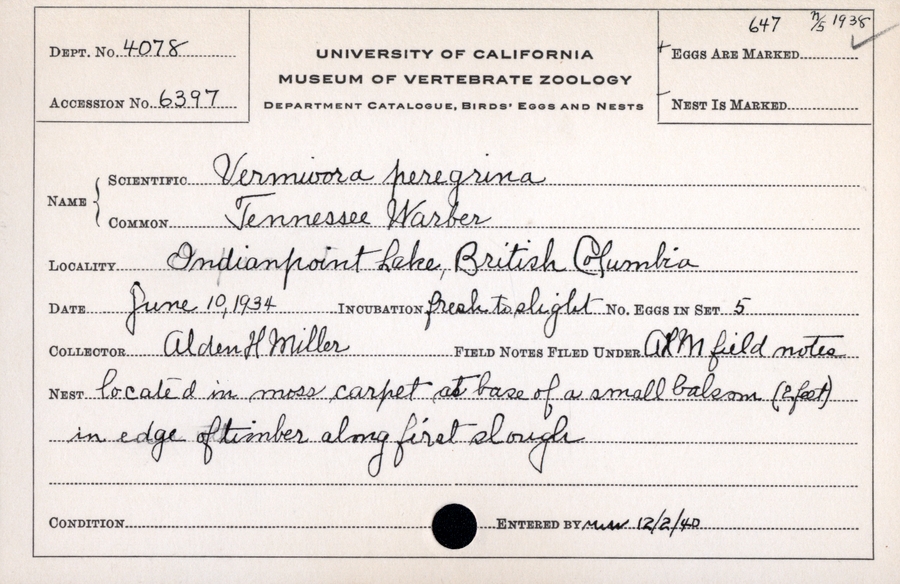 647 n/5 1938
DEPT. No. 4078
UNIVERSITY OF CALIFORNIA
+ EGGS ARE MARKED
MUSEUM OF VERTEBRATE ZOOLOGY
ACCESSION No. 6397
DEPARTMENT CATALOGUE, BIRDS' EGGS AND NESTS
- NEST IS MARKED
NAME { SCIENTIFIC Vermivora peregrina
COMMON Tennessee Warber
LOCALITY Indianpoint Lake, British Columbia
DATE June 10, 1934 INCUBATION fresh to slight No. EGGS IN SET 5
COLLECTOR Alden H Miller FIELD NOTES FILED UNDER field notes
NEST located in moss carpet at base of a small balsom (2 feet)
in edge of timber along first slough
CONDITION ENTERED BY 12/2/40